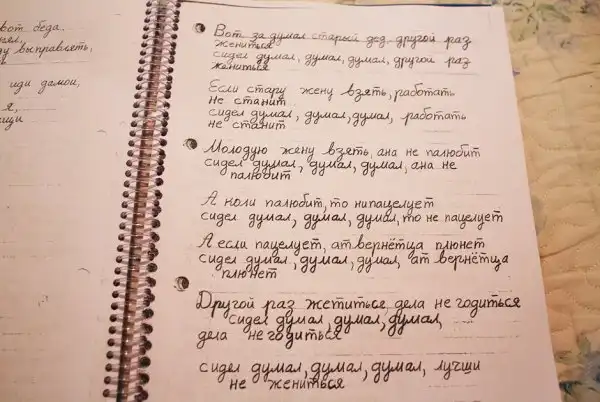 вот беда.
ну выправлять,
иди дамои,
я,
ищи
Вот за думал старый дед, другой раз
жениться
сидел думал, думал, думал, другой раз
жениться
Если стару жену взять, работать
не станит
сидел думал, думал, думал, работать
не станит
Молодую жену взять, ана не палюбит
сидел думал, думал, думал, ана не
палюбит
А коли палюбит, то нипацелует
сидел думал, думал, думал, то не пацелует
А если пацелует, ат вернётица плюнет
сидел думал, думал, думал, ат вернётица
плюнет
Другой раз жетиться, дела не годиться
сидел думал, думал, думал,
дела не годиться
сидел думал, думал, думал, лучши
не жениться